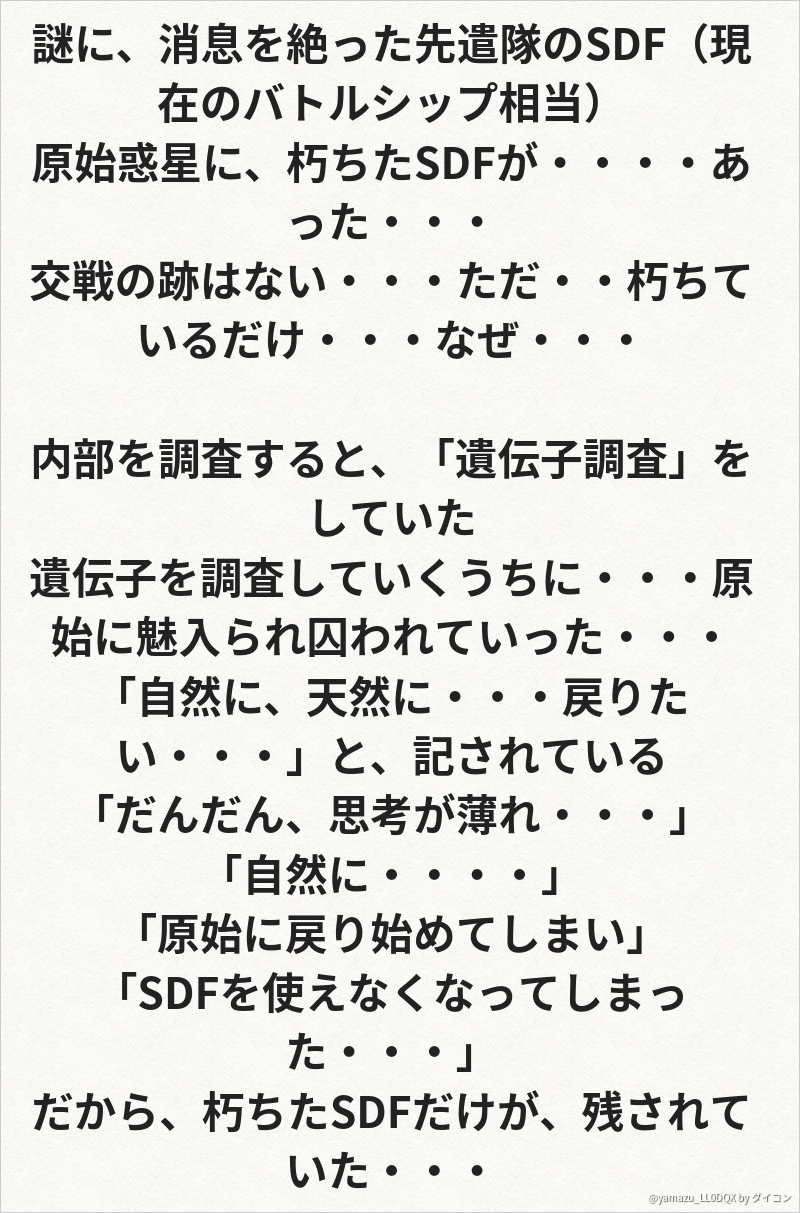 謎に、消息を絶った先遣隊のSDF（現
在のバトルシップ相当）
原始惑星に、朽ちたSDFが・・・・あ
った・・・
交戦の跡はない・・・ただ・・朽ちて
いるだけ・・・なぜ・・・
内部を調査すると、「遺伝子調査」を
していた
遺伝子を調査していくうちに・・・原
始に魅入られ囚われていった・・・
「自然に、天然に・・・戻りた
い・・・」と、記されている
「だんだん、思考が薄れ・・・」
「自然に・・・・」
「原始に戻り始めてしまい」
「SDFを使えなくなってしまっ
た・・・」
だから、朽ちたSDFだけが、残されて
いた・・・
@yamazu_LL0DQX by ダイコン